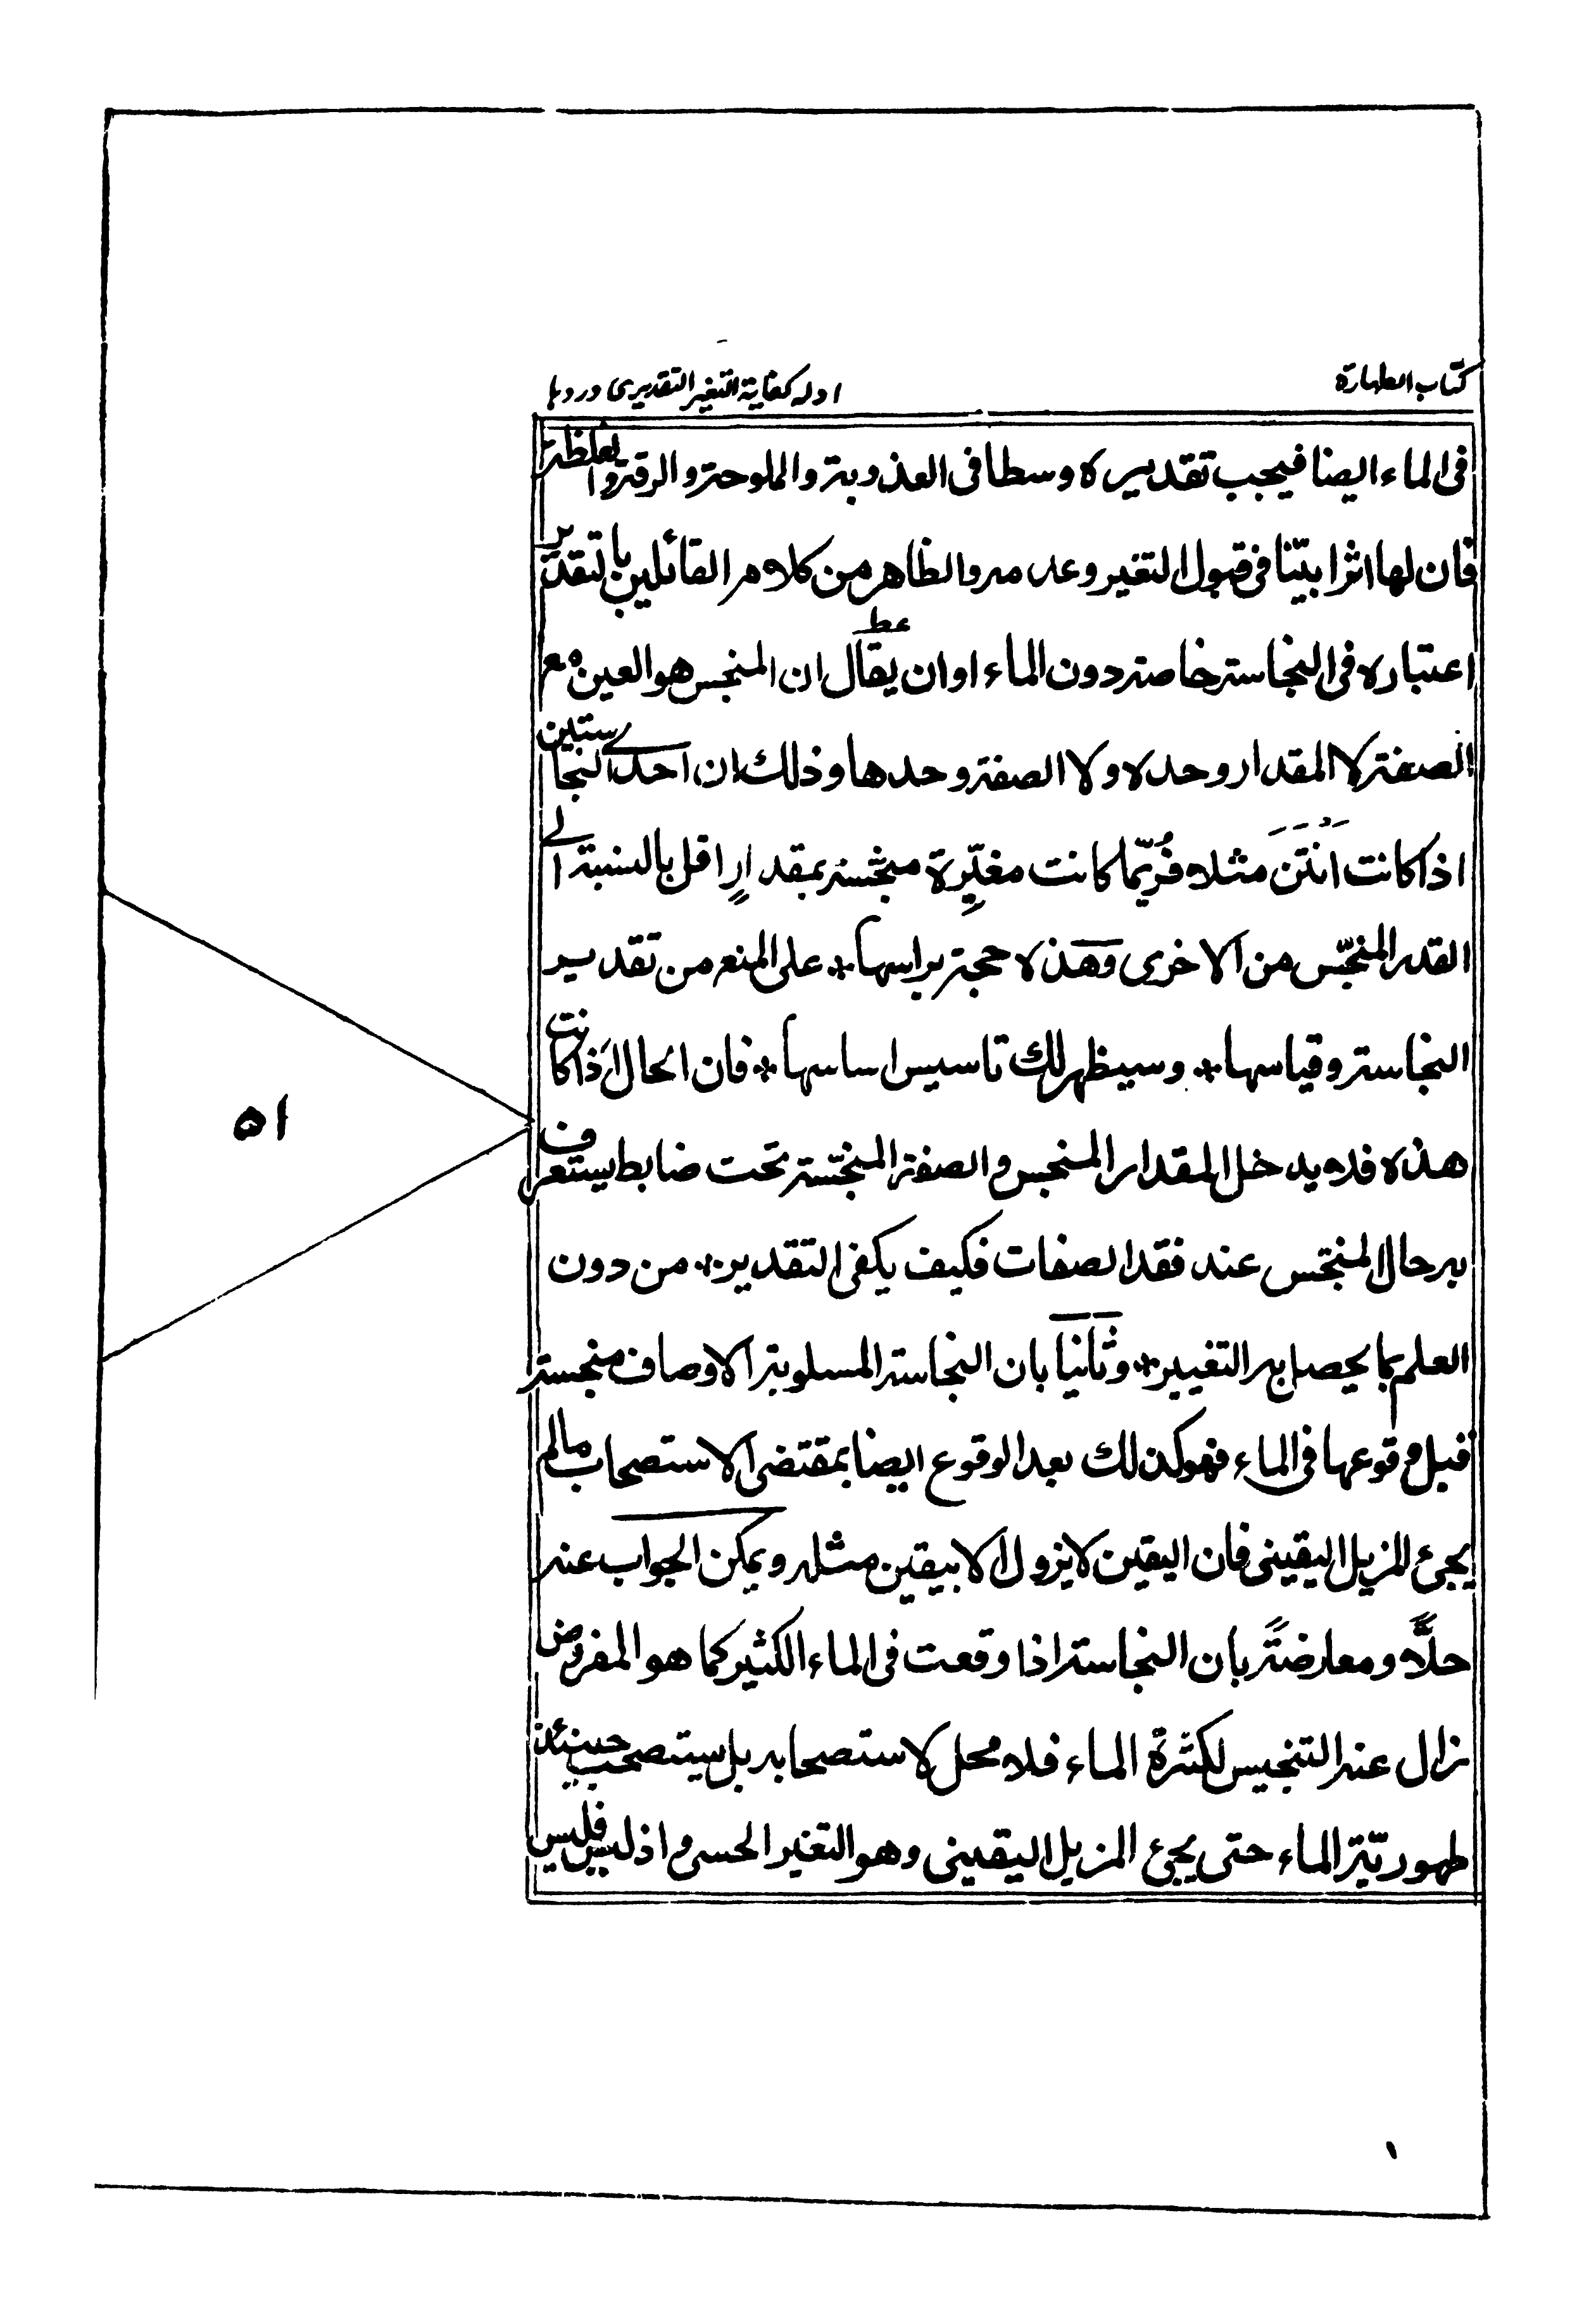 كتاب الطهارة
ادله كفاية التغير التقديرى وردها
فى الماء ايضا فيجب تقديره وسطا فى العذوبة والملوحة والرقة والغلظة
فان لها اثرا بيّنا فى قبول التغير وعدمه والظاهر من كلام القائلين بالتقدير
اعتباره فى النجاسة خاصة دون الماء او ان يقال ان المنجس هو العين مع
الصفة لا المقدار وحده ولا الصفة وحدها وذلك ان احدى النجاستين
اذا كانت اَنْتَنَ مثلا فرُبّما كانت مغيِّرة منجّسة بمقدارٍ اقل بالنسبة الى
القدر المنجّس من الاخرى وهذه حجة براسها * على المنع من تقدير
النجاسة وقياسها * وسيظهر لك تاسيس اساسها * فان الحال اذا كانت
هذه فلا يدخل المقدار المنجس والصفة المنجّسة تحت ضابط يستعرف
به حال المنجّس عند فقد الصفات فكيف يكفى التقدير * من دون
العلم بما يحصل به التغيير * وثانيا بان النجاسة المسلوبة الاوصاف منجسة
قبل وقوعها فى الماء فهو كذلك بعد الوقوع ايضا بمقتضى الاستصحاب مالم
يجئ المزيل اليقينى فان اليقين لا يزول الا بيقين مثله ويمكن الجواب عنه
حلًّا ومعارضةً بان النجاسة اذا وقعت فى الماء الكثير كما هو المفروض
زال عنه التنجيس لكثرة الماء فلا محل لاستصحابه بل يستصحب حينئذ
طهوريّة الماء حتى يجئ المزيل اليقينى وهو التغير الحسى واذ ليس فليس
٥١